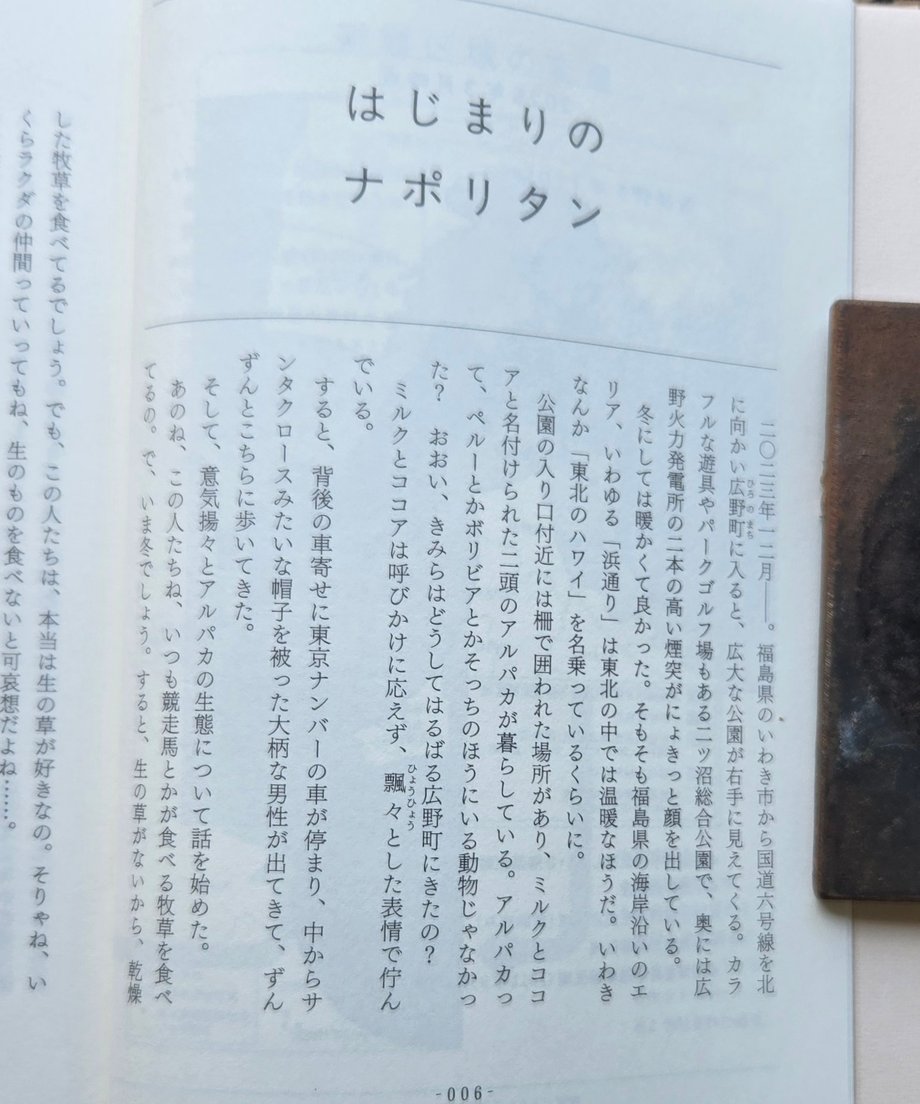 はじまりの
ナポリタン
二〇二三年一二月――。福島県のいわき市から国道六号線を北
に向かい広野町に入ると、広大な公園が右手に見えてくる。カラ
ひろのまち
フルな遊具やパークゴルフ場もある二ツ沼総合公園で、奥には広
野火力発電所の二本の高い煙突がにょきっと顔を出している。
冬にしては暖かくて良かった。そもそも福島県の海岸沿いのエ
リア、いわゆる「浜通り」は東北の中では温暖なほうだ。いわき
なんか「東北のハワイ」を名乗っているくらいに。
公園の入り口付近には柵で囲われた場所があり、ミルクとココ
アと名付けられた二頭のアルパカが暮らしている。アルパカっ
て、ペルーとかボリビアとかそっちのほうにいる動物じゃなかっ
た？　おおい、きみらはどうしてはるばる広野町にきたの？
ミルクとココアは呼びかけに応えず、飄々とした表情で佇ん
ひょうひょう
でいる。
すると、背後の車寄せに東京ナンバーの車が停まり、中からサ
ンタクロースみたいな帽子を被った大柄な男性が出てきて、ずん
ずんとこちらに歩いてきた。
そして、意気揚々とアルパカの生態について話を始めた。
あのね、この人たちね、いつも競走馬とかが食べる牧草を食べ
てるの。で、いま冬でしょう。すると、生の草がないから、乾燥
した牧草を食べてるでしょう。でも、この人たちは、本当は生の草が好きなの。そりゃね、い
くらラクダの仲間っていってもね、生のものを食べないと可哀想だよね……。
-006-